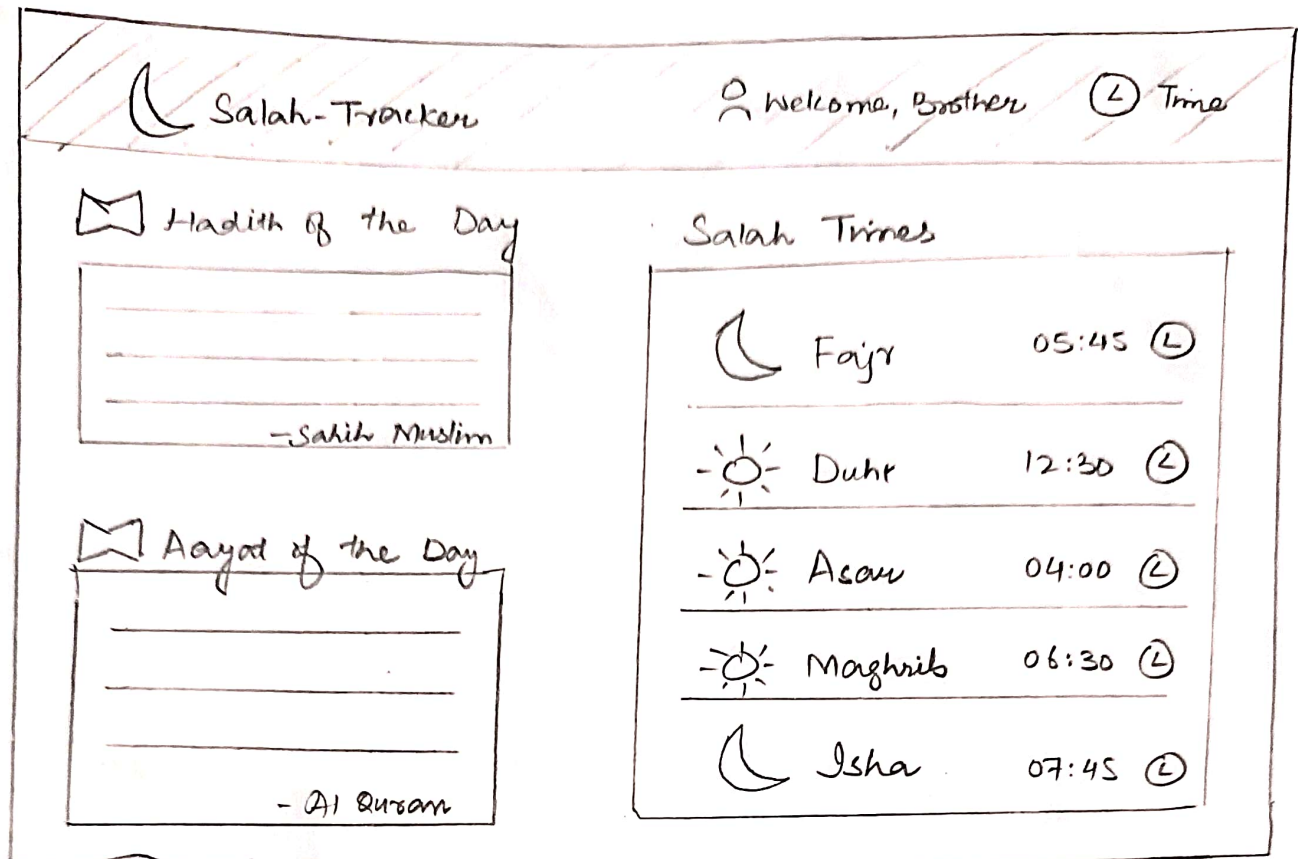 Salah-Tracker
Welcome, Brother
Time
Hadith of the Day
- Sahih Muslim
Aayat of the Day
- Al Quran
Salah Times
Fajr 05:45
Duhr 12:30
Asar 04:00
Maghrib 06:30
Isha 07:45